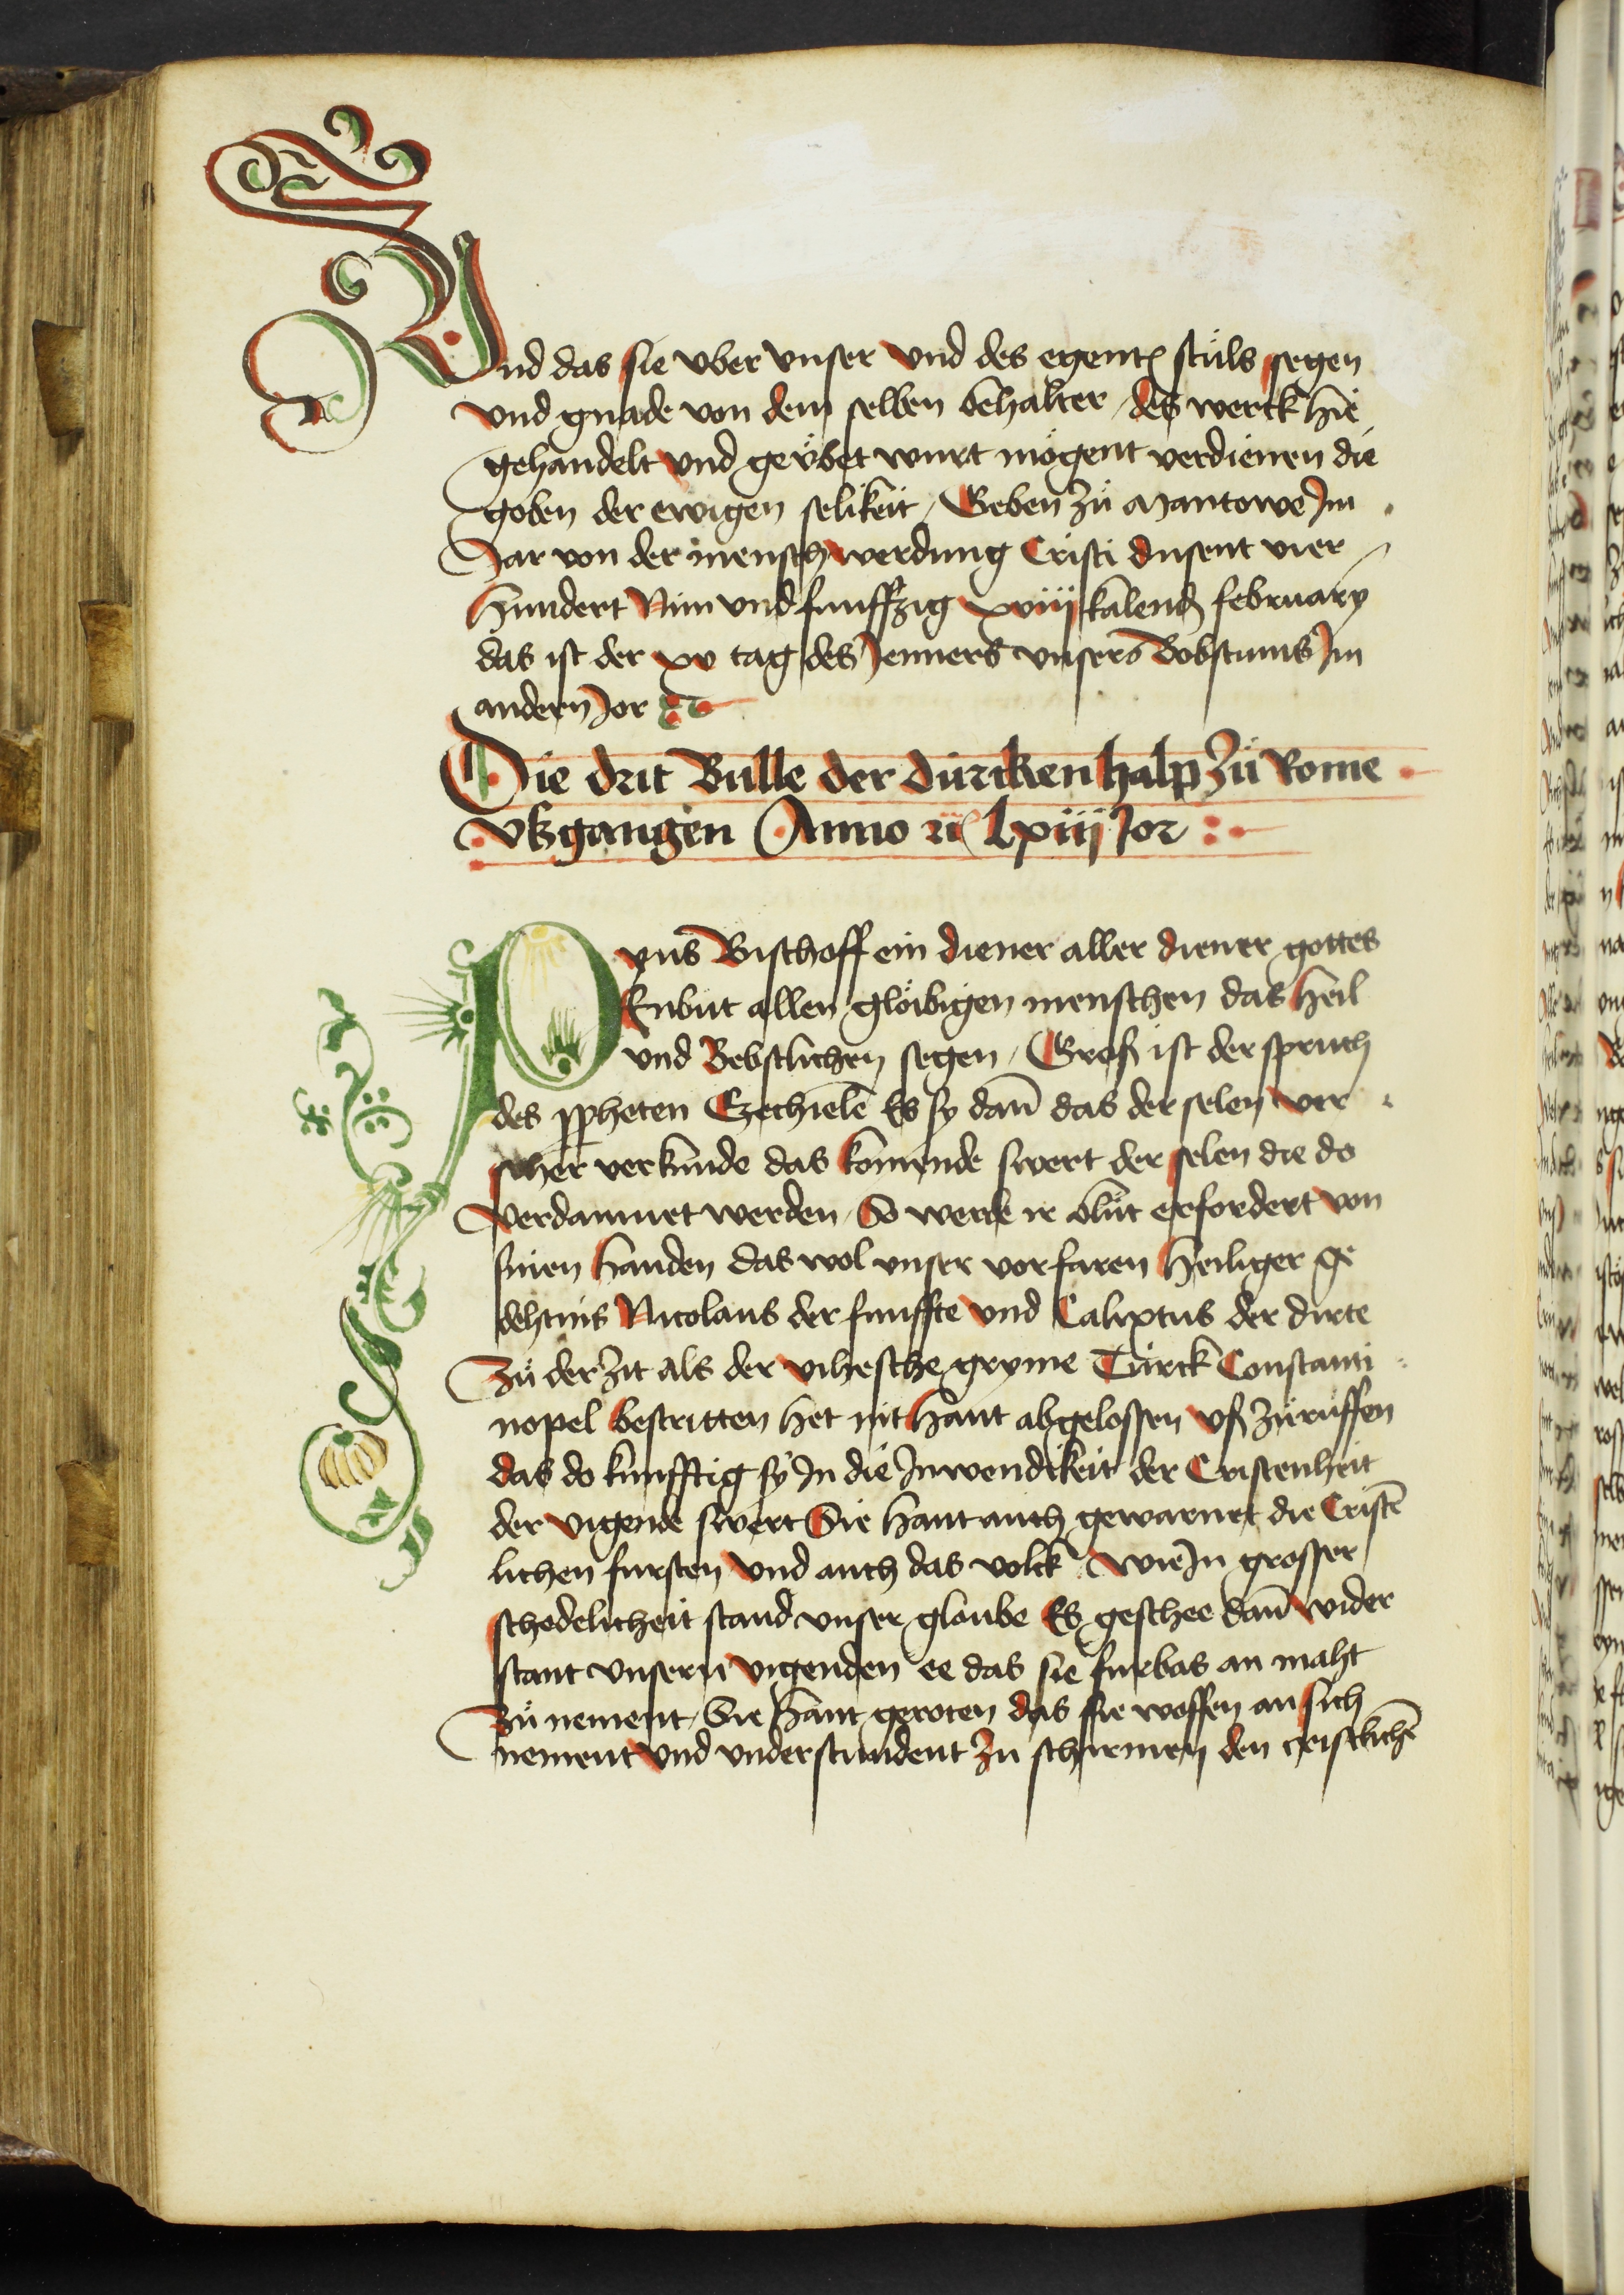 Und das sie vber vnser vnd des egent(en) stuͤls segen
vnd gnade von dem selben behalter / des werck hie
gehandelt vnd geuͤbet wurt moͤgent verdienen die
goben der ewigen selikeit / Geben zuͤ Mantowe Jm
Jar von der menschwerdung Cristi dusent vier
hundert Nún vnd funffzig xviij kalend februarÿ
das ist der xv tag des Jenners vnsers Bobstums Jm
andern Jor
Die drit Bulle der dürcken halp Zuͤ Rome
vßgangen Anno ꝛc Lxiij Jor
Pyus Bischoff ein diener aller diener gottes
Enbut allen gloͤibigen menschen das heil
vnd Bebstlichen segen / Groß ist der spruch
des ppheten Ezechielē Es sy dañ das der selen ver
scher verkunde das komende swert der selen die do
verdammet werden / So werde ir bluͤt erfordert von
sinen handen das wol vnser vorfaren heiliger ge
dehtnis Nicolaus der funffte vnd Calixtus der dirte
Zuͤ der zit als der vihesche gryme Türck Constanti
nopel bestritten het nit hant abgelossen vß zuͤruͤffen
das do kunfftig sy Jn die Jnwendikeit der Cristenheit
der vigende swert Sie hant auch gewarnet die Cristē
lichen fursten vnd auch das volck wie Jn grosser
schedelicheit stand vnser gloube Es geschee dañ wider
stant vnsern vigenden ee das sie furbas an maht
Zuͤ nement / Sie hant geroten das sie woffen an sich
nement vnd vnderstundent zu schirmen den geistlichē